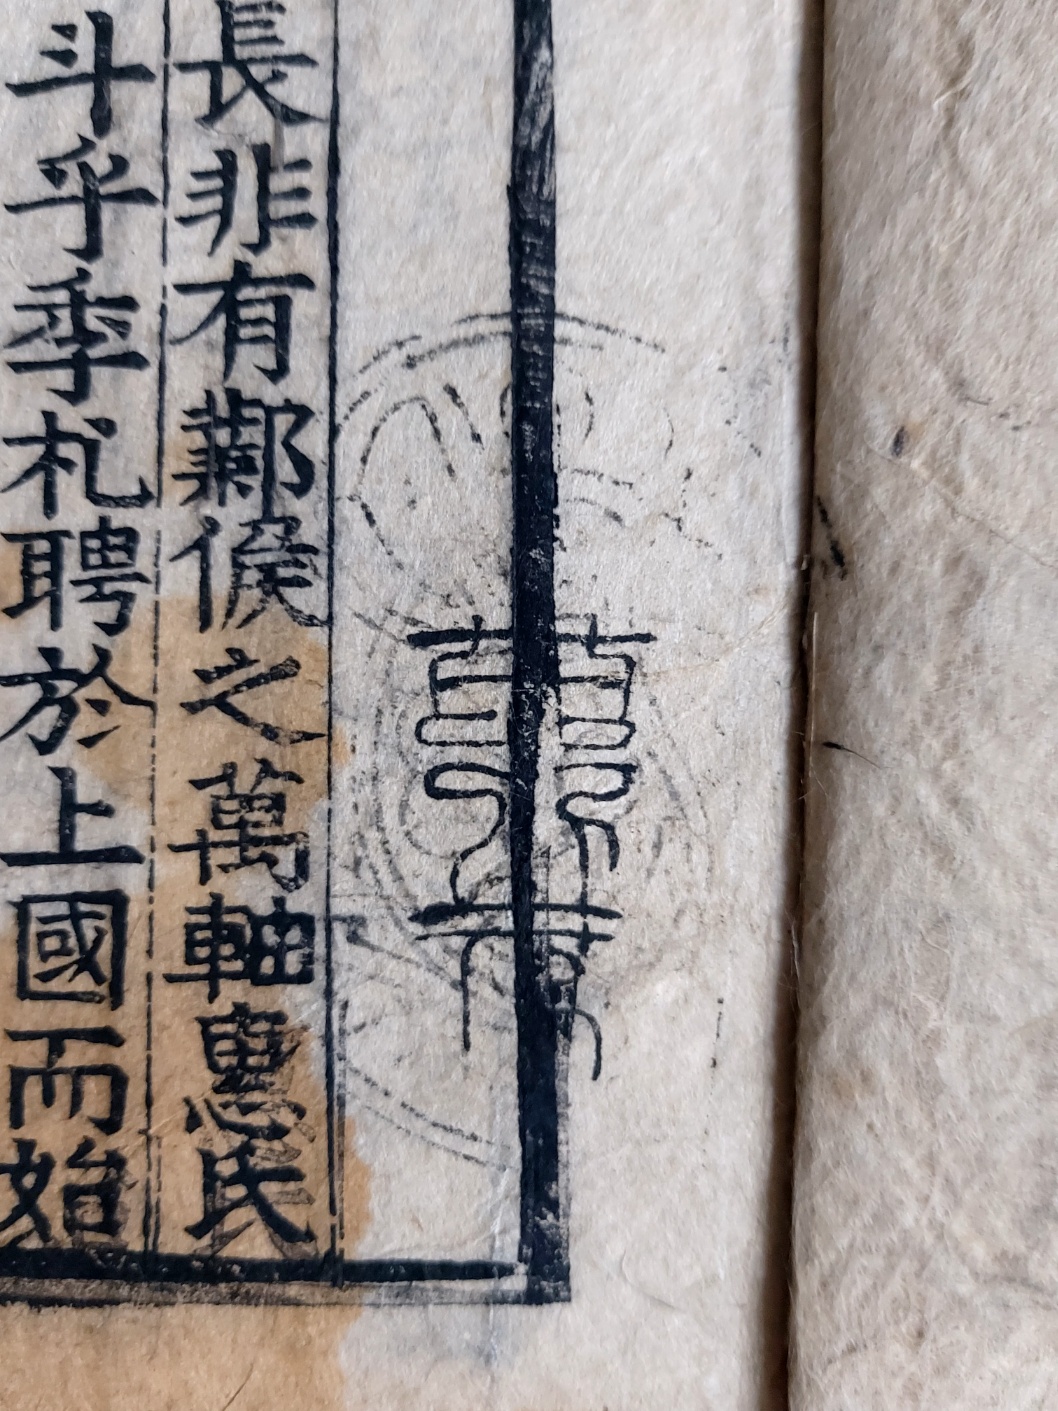 長非有鄴侯之萬軸惠氏
斗乎季札聘於上國而始